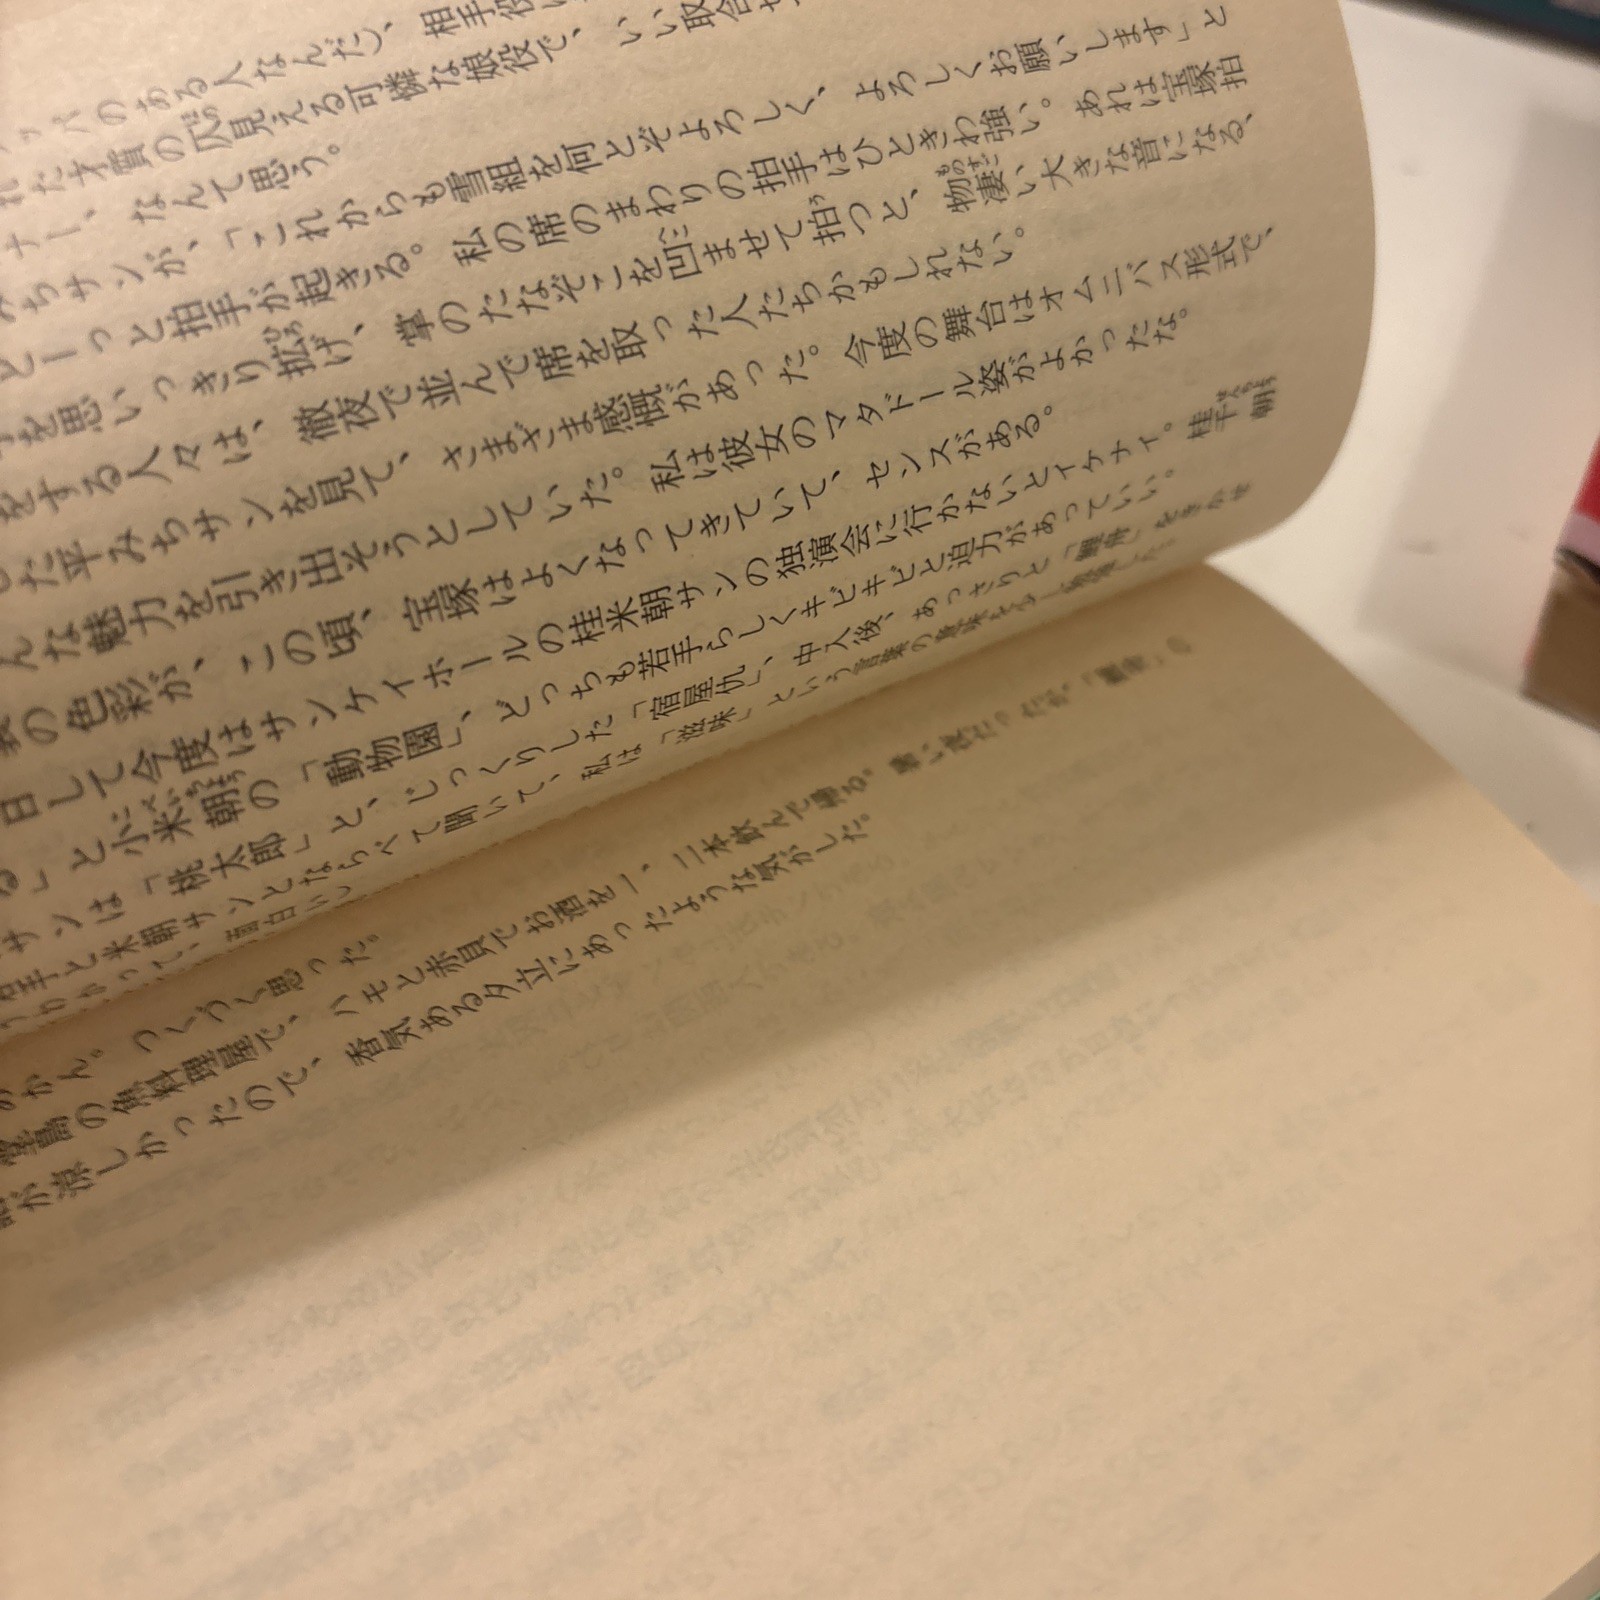 パのある人なんだ)、相手役に
れたす質の仄見える可憐な娘役で、いい取合せ
ナー、なんて思う。
みちサンが、「これからも雪組を何とぞよろしく、よろしくお願いします」と
どーっと拍手が起きる。私の席のまわりの拍手はひときわ強い。あれは宝塚拍
を思いっきり拡げ、掌のたなぞこを凹ませて拍つと、物凄い大きな音になる、
をする人々は、徹夜で並んで席を取った人たちかもしれない。
した平みちサンを見て、さまざま感慨があった。今度の舞台はオムニバス形式で、
んな魅力を引き出そうとしていた。私は彼女のマタドール姿がよかったな。
の色彩が、この頃、宝塚はよくなってきていて、センスがある。
日して今度はサンケイホールの桂米朝サンの独演会に行かないとイケナイ。桂千朝
る」と小米朝の「動物園」、どっちも若手らしくキビキビと迫力があっていい。
サンは「桃太郎」と、じっくりした「宿屋仇」、中入後、あっさりと「鯉舟」をきかせ
若手と米朝サンとならべて聞いて、私は「滋味」という言葉の意味を
わかって、面白いし
めかん。つくづく思った。
堂島の魚料理屋で、ハモと赤貝でお酒を一、二本飲んで帰る。暑い夜だったが、「鯉舟」の
が涼しかったので、香気ある夕立にあったような気がした。